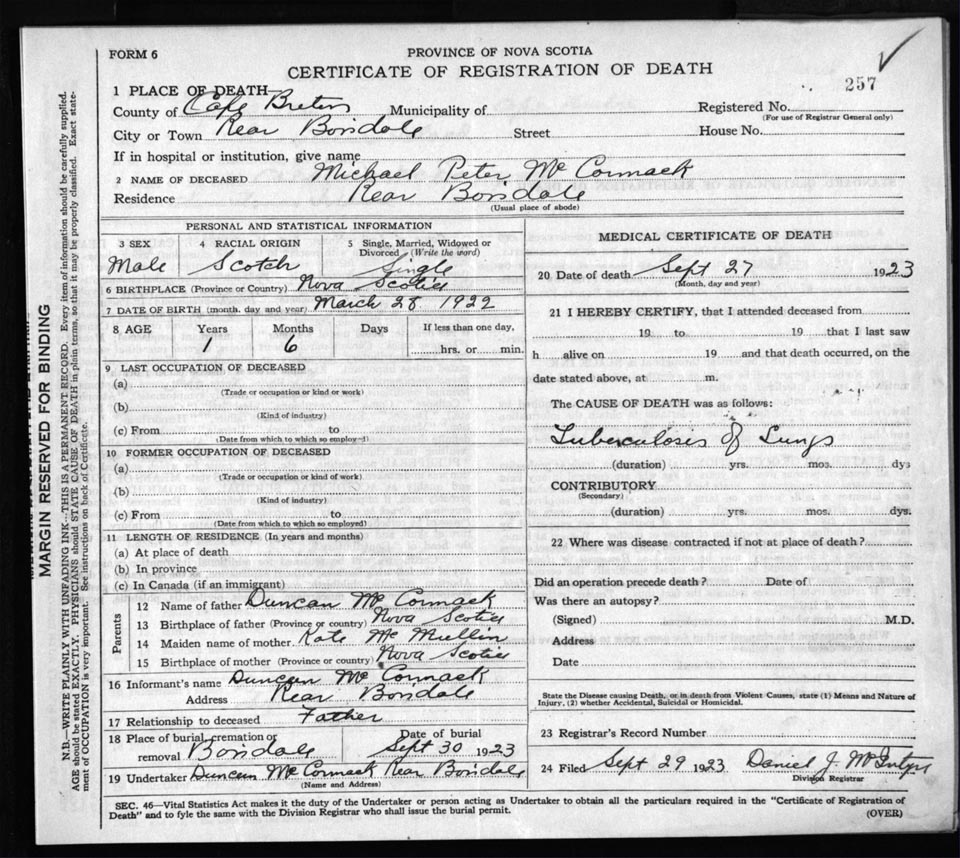 FORM 6
PROVINCE OF NOVA SCOTIA
CERTIFICATE OF REGISTRATION OF DEATH
257
1 PLACE OF DEATH
County of Cape Breton Municipality of Registered No.
(For use of Registrar General only)
City or Town Rear Boisdale Street House No.
If in hospital or institution, give name
2 NAME OF DECEASED Michael Peter McCormack
Residence Rear Boisdale
(Usual place of abode)
PERSONAL AND STATISTICAL INFORMATION
3 SEX 4 RACIAL ORIGIN 5 Single, Married, Widowed or Divorced (Write the word)
Male Scotch Single
6 BIRTHPLACE (Province or Country) Nova Scotia
7 DATE OF BIRTH (month, day and year) March 28 1922
8 AGE Years Months Days If less than one day,
1 6 hrs. or min.
9 LAST OCCUPATION OF DECEASED
(a)
(Trade or occupation or kind or work)
(b)
(Kind of industry)
(c) From to
(Date from which to which so employed)
10 FORMER OCCUPATION OF DECEASED
(a)
(Trade or occupation or kind of work)
(b)
(Kind of industry)
(c) From to
(Date from which to which so employed)
11 LENGTH OF RESIDENCE (In years and months)
(a) At place of death
(b) In province
(c) In Canada (if an immigrant)
Parents
12 Name of father Duncan McCormack
13 Birthplace of father (Province or country) Nova Scotia
14 Maiden name of mother. Kate McMullin
15 Birthplace of mother (Province or country) Nova Scotia
16 Informant's name Duncan McCormack
Address Rear Boisdale
17 Relationship to deceased Father
18 Place of burial, cremation or removal Boisdale
Date of burial Sept 30 1923
19 Undertaker Duncan McCormack Rear Boisdale
(Name and Address)
MEDICAL CERTIFICATE OF DEATH
20 Date of death Sept 27 1923
(Month, day and year)
21 I HEREBY CERTIFY, that I attended deceased from
19 to 19 that I last saw
h alive on 19 and that death occurred, on the
date stated above, at m.
The CAUSE OF DEATH was as follows:
Tuberculosis of Lungs
(duration) yrs. mos. dys
CONTRIBUTORY
(Secondary)
(duration) yrs. mos. dys.
22 Where was disease contracted if not at place of death?
Did an operation precede death? Date of
Was there an autopsy?
(Signed) M.D.
Address
Date
State the Disease causing Death, or in death from Violent Causes, state (1) Means and Nature of
Injury, (2) whether Accidental, Suicidal or Homicidal.
23 Registrar's Record Number
24 Filed Sept 29 1923 Daniel J. McIntyre
Division Registrar
SEC. 46—Vital Statistics Act makes it the duty of the Undertaker or person acting as Undertaker to obtain all the particulars required in the "Certificate of Registration of
Death" and to fyle the same with the Division Registrar who shall issue the burial permit.
(OVER)
MARGIN RESERVED FOR BINDING
N.B.—WRITE PLAINLY WITH UNFADING INK—THIS IS A PERMANENT RECORD. Every item of information should be carefully supplied.
AGE should be stated EXACTLY. PHYSICIANS should STATE CAUSE OF DEATH in plain terms, so that it may be properly classified. Exact state-
ment of OCCUPATION is very important. See instructions on back of Certificate.